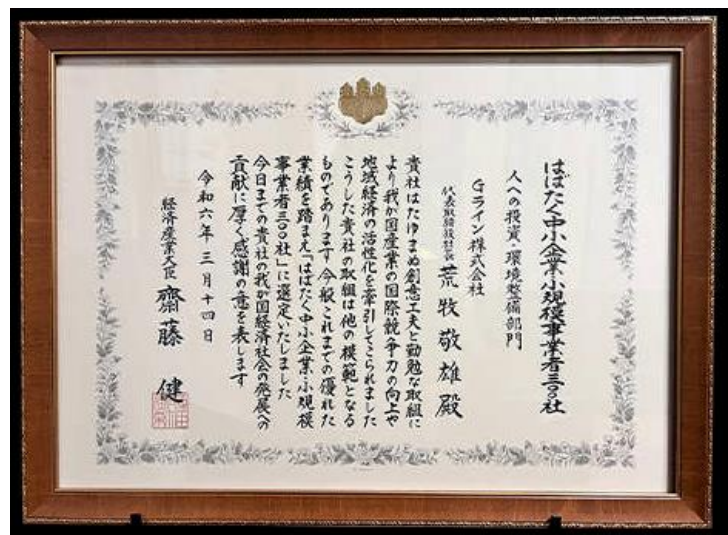 はばたく中小企業・小規模事業者三〇〇社
人への投資・環境整備部門
Gライン株式会社
代表取締役社長 荒牧敬雄殿
貴社はたゆまぬ創意工夫と勤勉な取組に
より我が国産業の国際競争力の向上や
地域経済の活性化を牽引してこられました
こうした貴社の取組は他の模範となる
ものであります 今般これまでの優れた
業績を踏まえ「はばたく中小企業・小規模
事業者三〇〇社」に選定いたしました
今日までの貴社の我が国経済社会の発展への
貢献に厚く感謝の意を表します
令和六年三月十四日
経済産業大臣 齋藤 健